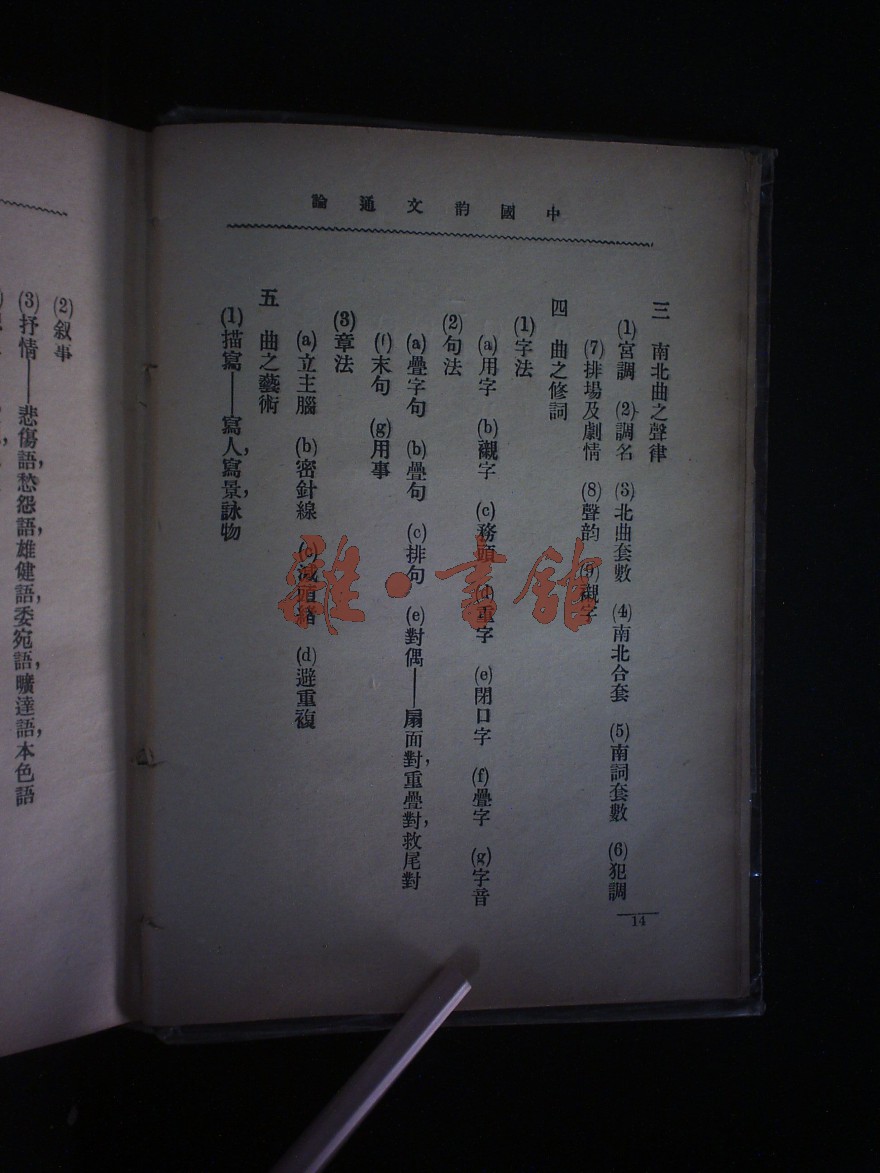 中國韵文通論
三 南北曲之聲律
(1)宮調 (2)調名 (3)北曲套數 (4)南北合套 (5)南詞套數 (6)犯調
(7)排場及劇情 (8)聲韵 (9)襯字
四 曲之修詞
(1)字法
(a)用字 (b)襯字 (c)務頭 (d)重字 (e)閉口字 (f)疊字 (g)字音
(2)句法
(a)疊字句 (b)疊句 (c)排句 (e)對偶——扇面對,重疊對,救尾對
(f)末句 (g)用事
(3)章法
(a)立主腦 (b)密針線 (c)減頭緒 (d)避重複
五 曲之藝術
(1)描寫——寫人,寫景,詠物
14
(2)叙事
(3)抒情——悲傷語,愁怨語,雄健語,委宛語,曠達語,本色語
雜·書館